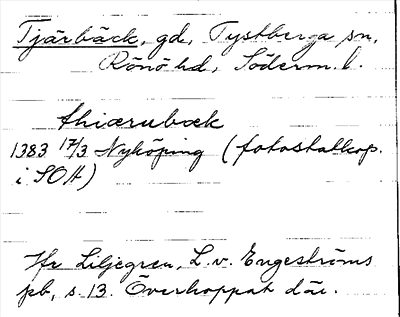 Tjärbäck, gd, Tystberga sn,
Rönö hd, Söderm. l.
thiærubæk
1383 17/3 Nyköping (fotostatkop.
i SOA)
Hr Liljegren, L. v. Engeströms
pb, s. 13. Överhoppat där.